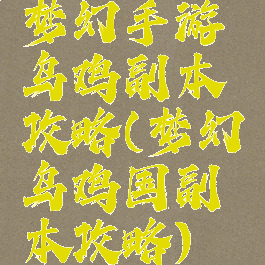 梦幻手游
乌鸡副本
攻略(梦幻
乌鸡国副
本攻略)